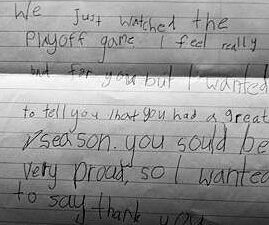 We just watched the
Playoff game I feel really
bad for you but I wanted
to tell you that you had a great
season. you sould be
very proud, so I wanted
to say thank you